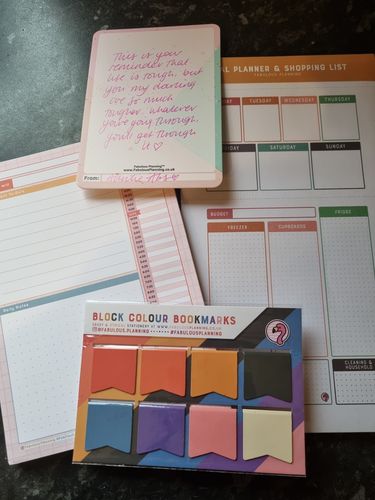 This is your
reminder that
life is tough, but
you my darling
are so much
tougher. whatever
you're going through,
you'll get through
it ♡
Fabulous Planning™
www.FabulousPlanning.co.uk
From:
AL PLANNER & SHOPPING LIST
FABULOUS PLANNING
TUESDAY
WEDNESDAY
THURSDAY
SATURDAY
SUNDAY
BUDGET
FREEZER
CUPBOARDS
FRIDGE
CLEANING &
HOUSEHOLD
Daily Notes
BLOCK COLOUR BOOKMARKS
@FABULOUS.PLANNING
#FABULOUSPLANNING